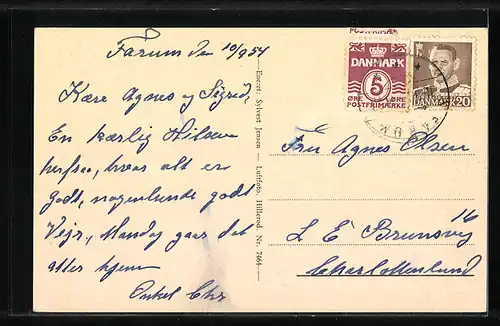 Farum den 10/9 54
Kære Agnes og Sigrid,
En kærlig Hilsen
herfra, hvor alt er
godt, nogenlunde godt
Vejr, Mandag gaar det
atter hjem
Onkel Chr
Eneret: Sylvest Jensen — Luftfoto. Hillerød. Nr. 7464
POSTFRIMÆ
DANMARK
5
ØRE ØRE
POSTFRIMÆRKE
DANMARK
20
FARUM
Fru Agnes Olsen
L E Brunsvej 16
Charlottenlund